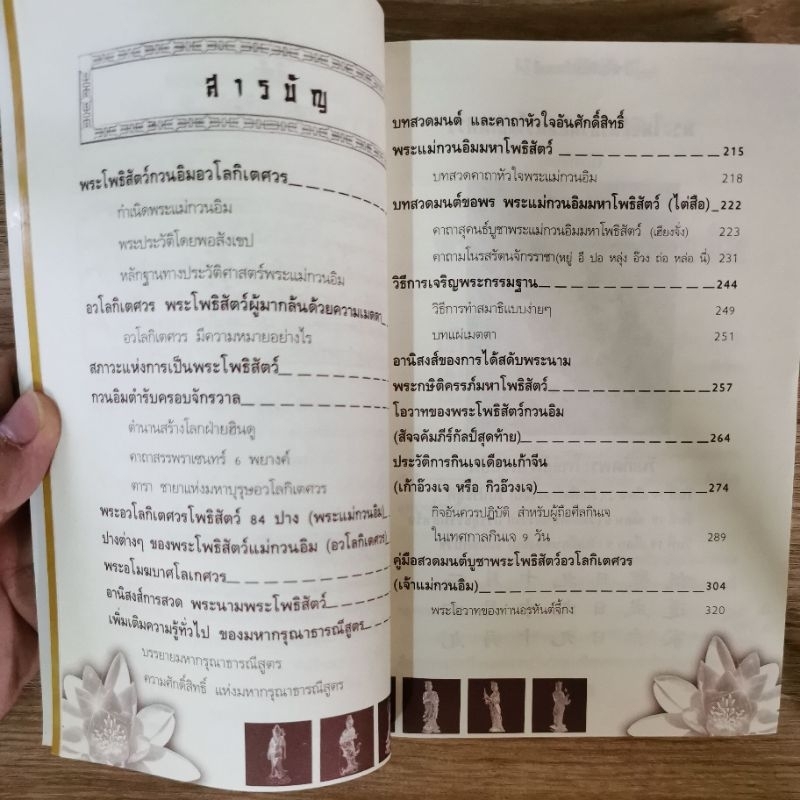 สารบัญ
พระโพธิสัตว์กวนอิมอวโลกิเตศวร
กำเนิดพระแม่กวนอิม
พระประวัติโดยพอสังเขป
หลักฐานทางประวัติศาสตร์พระแม่กวนอิม
อวโลกิเตศวร พระโพธิสัตว์ผู้มากล้นด้วยความเมตตา
อวโลกิเตศวร มีความหมายอย่างไร
สภาวะแห่งการเป็นพระโพธิสัตว์
กวนอิมตำรับครอบจักรวาล
ตำนานสร้างโลกฝ่ายฮินดู
คาถาสรรพราเชนทร์ 6 พยางค์
ตารา ชายาแห่งมหาบุรุษอวโลกิเตศวร
พระอวโลกิเตศวรโพธิสัตว์ 84 ปาง (พระแม่กวนอิม)
ปางต่างๆ ของพระโพธิสัตว์แม่กวนอิม (อวโลกิเตศวร)
พระอโมฆบาศโลเกศวร
อานิสงส์การสวด พระนามพระโพธิสัตว์
เพิ่มเติมความรู้ทั่วไป ของมหากรุณาธารณีสูตร
บรรยายมหากรุณาธารณีสูตร
ความศักดิ์สิทธิ์ แห่งมหากรุณาธารณีสูตร
บทสวดมนต์ และคาถาหัวใจอันศักดิ์สิทธิ์
พระแม่กวนอิมมหาโพธิสัตว์ 215
บทสวดคาถาหัวใจพระแม่กวนอิม 218
บทสวดมนต์ขอพร พระแม่กวนอิมมหาโพธิสัตว์ (ไต่สือ) 222
คาถาสุคนธ์บูชาพระแม่กวนอิมมหาโพธิสัตว์ (เฮียงจั่ง) 223
คาถามโนรสรัตนจักรราชา(หยู่ อี ปอ หลุ่ง อ๊วง ถ่อ หล่อ นี่) 231
วิธีการเจริญพระกรรมฐาน 244
วิธีการทำสมาธิแบบง่ายๆ 249
บทแผ่เมตตา 251
อานิสงส์ของการได้สดับพระนาม
พระกษิติครรภ์มหาโพธิสัตว์ 257
โอวาทของพระโพธิสัตว์กวนอิม
(สัจจคัมภีร์กัลป์สุดท้าย) 264
ประวัติการกินเจเดือนเก้าจีน
(เก้าอ๊วงเจ หรือ กิวอ๊วงเจ) 274
กิจอันควรปฏิบัติ สำหรับผู้ถือศีลกินเจ
ในเทศกาลกินเจ 9 วัน 289
คู่มือสวดมนต์บูชาพระโพธิสัตว์อวโลกิเตศวร
(เจ้าแม่กวนอิม) 304
พระโอวาทของท่านอรหันต์จี้กง 320